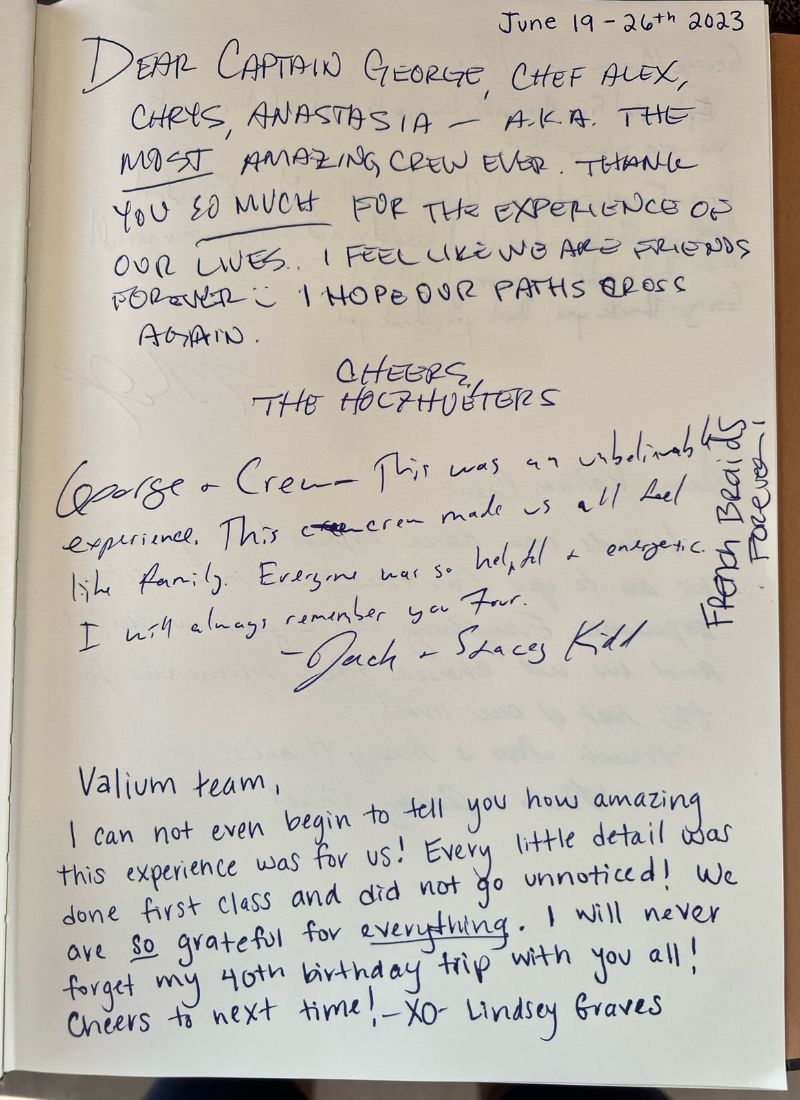 June 19 - 26th 2023
DEAR CAPTAIN GEORGE, CHEF ALEX,
CHRYS, ANASTASIA — A.K.A. THE
MOST AMAZING CREW EVER. THANK
YOU SO MUCH FOR THE EXPERIENCE OF
OUR LIVES. I FEEL LIKE WE ARE FRIENDS
FOREVER :) I HOPE OUR PATHS CROSS
AGAIN.
CHEERS,
THE HOLZHUETERS
George + Crew - This was an unbelivable
experience. This crew made us all feel
like family. Everyone was so helpful + energetic.
I will always remember you four.
- Jack + Stacey Kidd
FRENCH BRAIDS
FOREVER!
Valium team,
I can not even begin to tell you how amazing
this experience was for us! Every little detail was
done first class and did not go unnoticed! We
are so grateful for everything. I will never
forget my 40th birthday trip with you all!
Cheers to next time! - XO - Lindsey Graves